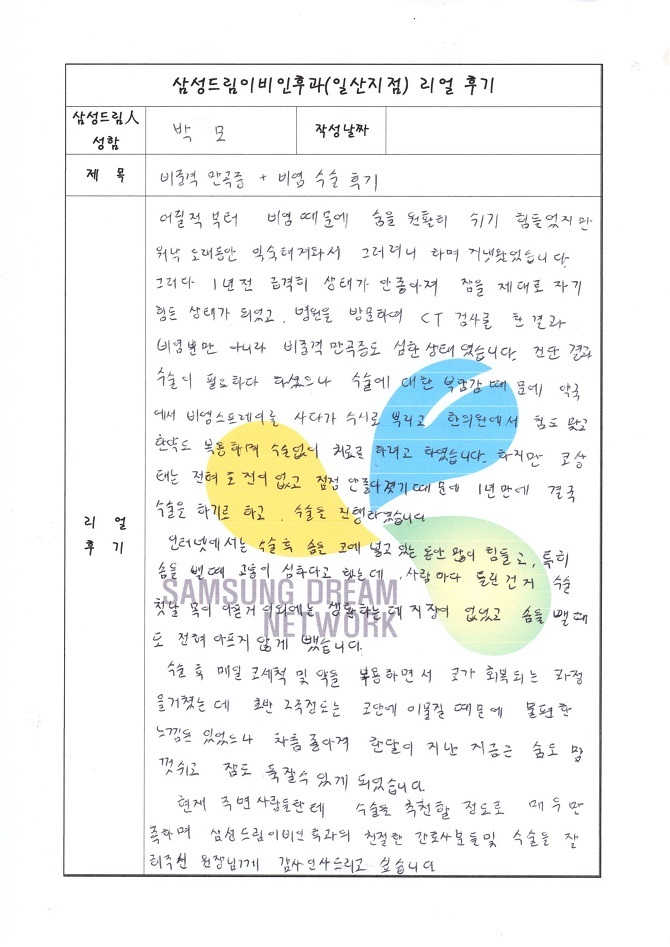 삼성드림이비인후과(일산지점) 리얼 후기
삼성드림人 성함
박 모
작성날짜
제 목
비중격 만곡증 + 비염 수술 후기
리 얼 후 기
어릴적 부터 비염 때문에 숨을 원활히 쉬기 힘들었지만
워낙 오래동안 익숙해져와서 그러려니 하며 지냈왔었습니다.
그러다 1년전 급격히 상태가 안좋아져 잠을 제대로 자기
힘든 상태가 되었고, 병원을 방문하여 CT 검사를 한 결과
비염뿐만 아니라 비중격 만곡증도 심한 상태였습니다. 진단 결과
수술이 필요하다 하셨으나 수술에 대한 부담감 때문에 약국
에서 비염스프레이를 사다가 수시로 뿌리고 한의원에서 침도 맞고
한약도 복용하며 수술없이 치료를 하려고 하였습니다. 하지만 코상
태는 전혀 호전이 없고 점점 안좋아졌기 때문에 1년만에 결국
수술을 하기로 하고, 수술을 진행하였습니다
인터넷에서는 수술 후 솜을 코에 넣고 있는 동안 많이 힘들고, 특히
솜을 뺄때 고통이 심하다고 했는데, 사람마다 다른건지 수술
첫날 목이 아픈거 이외에는 생활하는데 지장이 없었고 솜을 뺄때
도 전혀 아프지 않게 뺐습니다.
수술 후 매일 코세척 및 약을 복용하면서 코가 회복되는 과정
을거쳤는데 초반 2주정도는 코안에 이물질 때문에 불편한
느낌도 있었으나 차츰 좋아져 한달이 지난 지금은 숨도 맘
껏쉬고 잠도 푹잘수 있게 되었습니다.
현재 주변사람들한테 수술을 추천할 정도로 매우만
족하며 삼성드림이비인후과의 친절한 간호사분들및 수술을 잘
해주신 원장님께 감사인사드리고 싶습니다
SAMSUNG DREAM
NETWORK